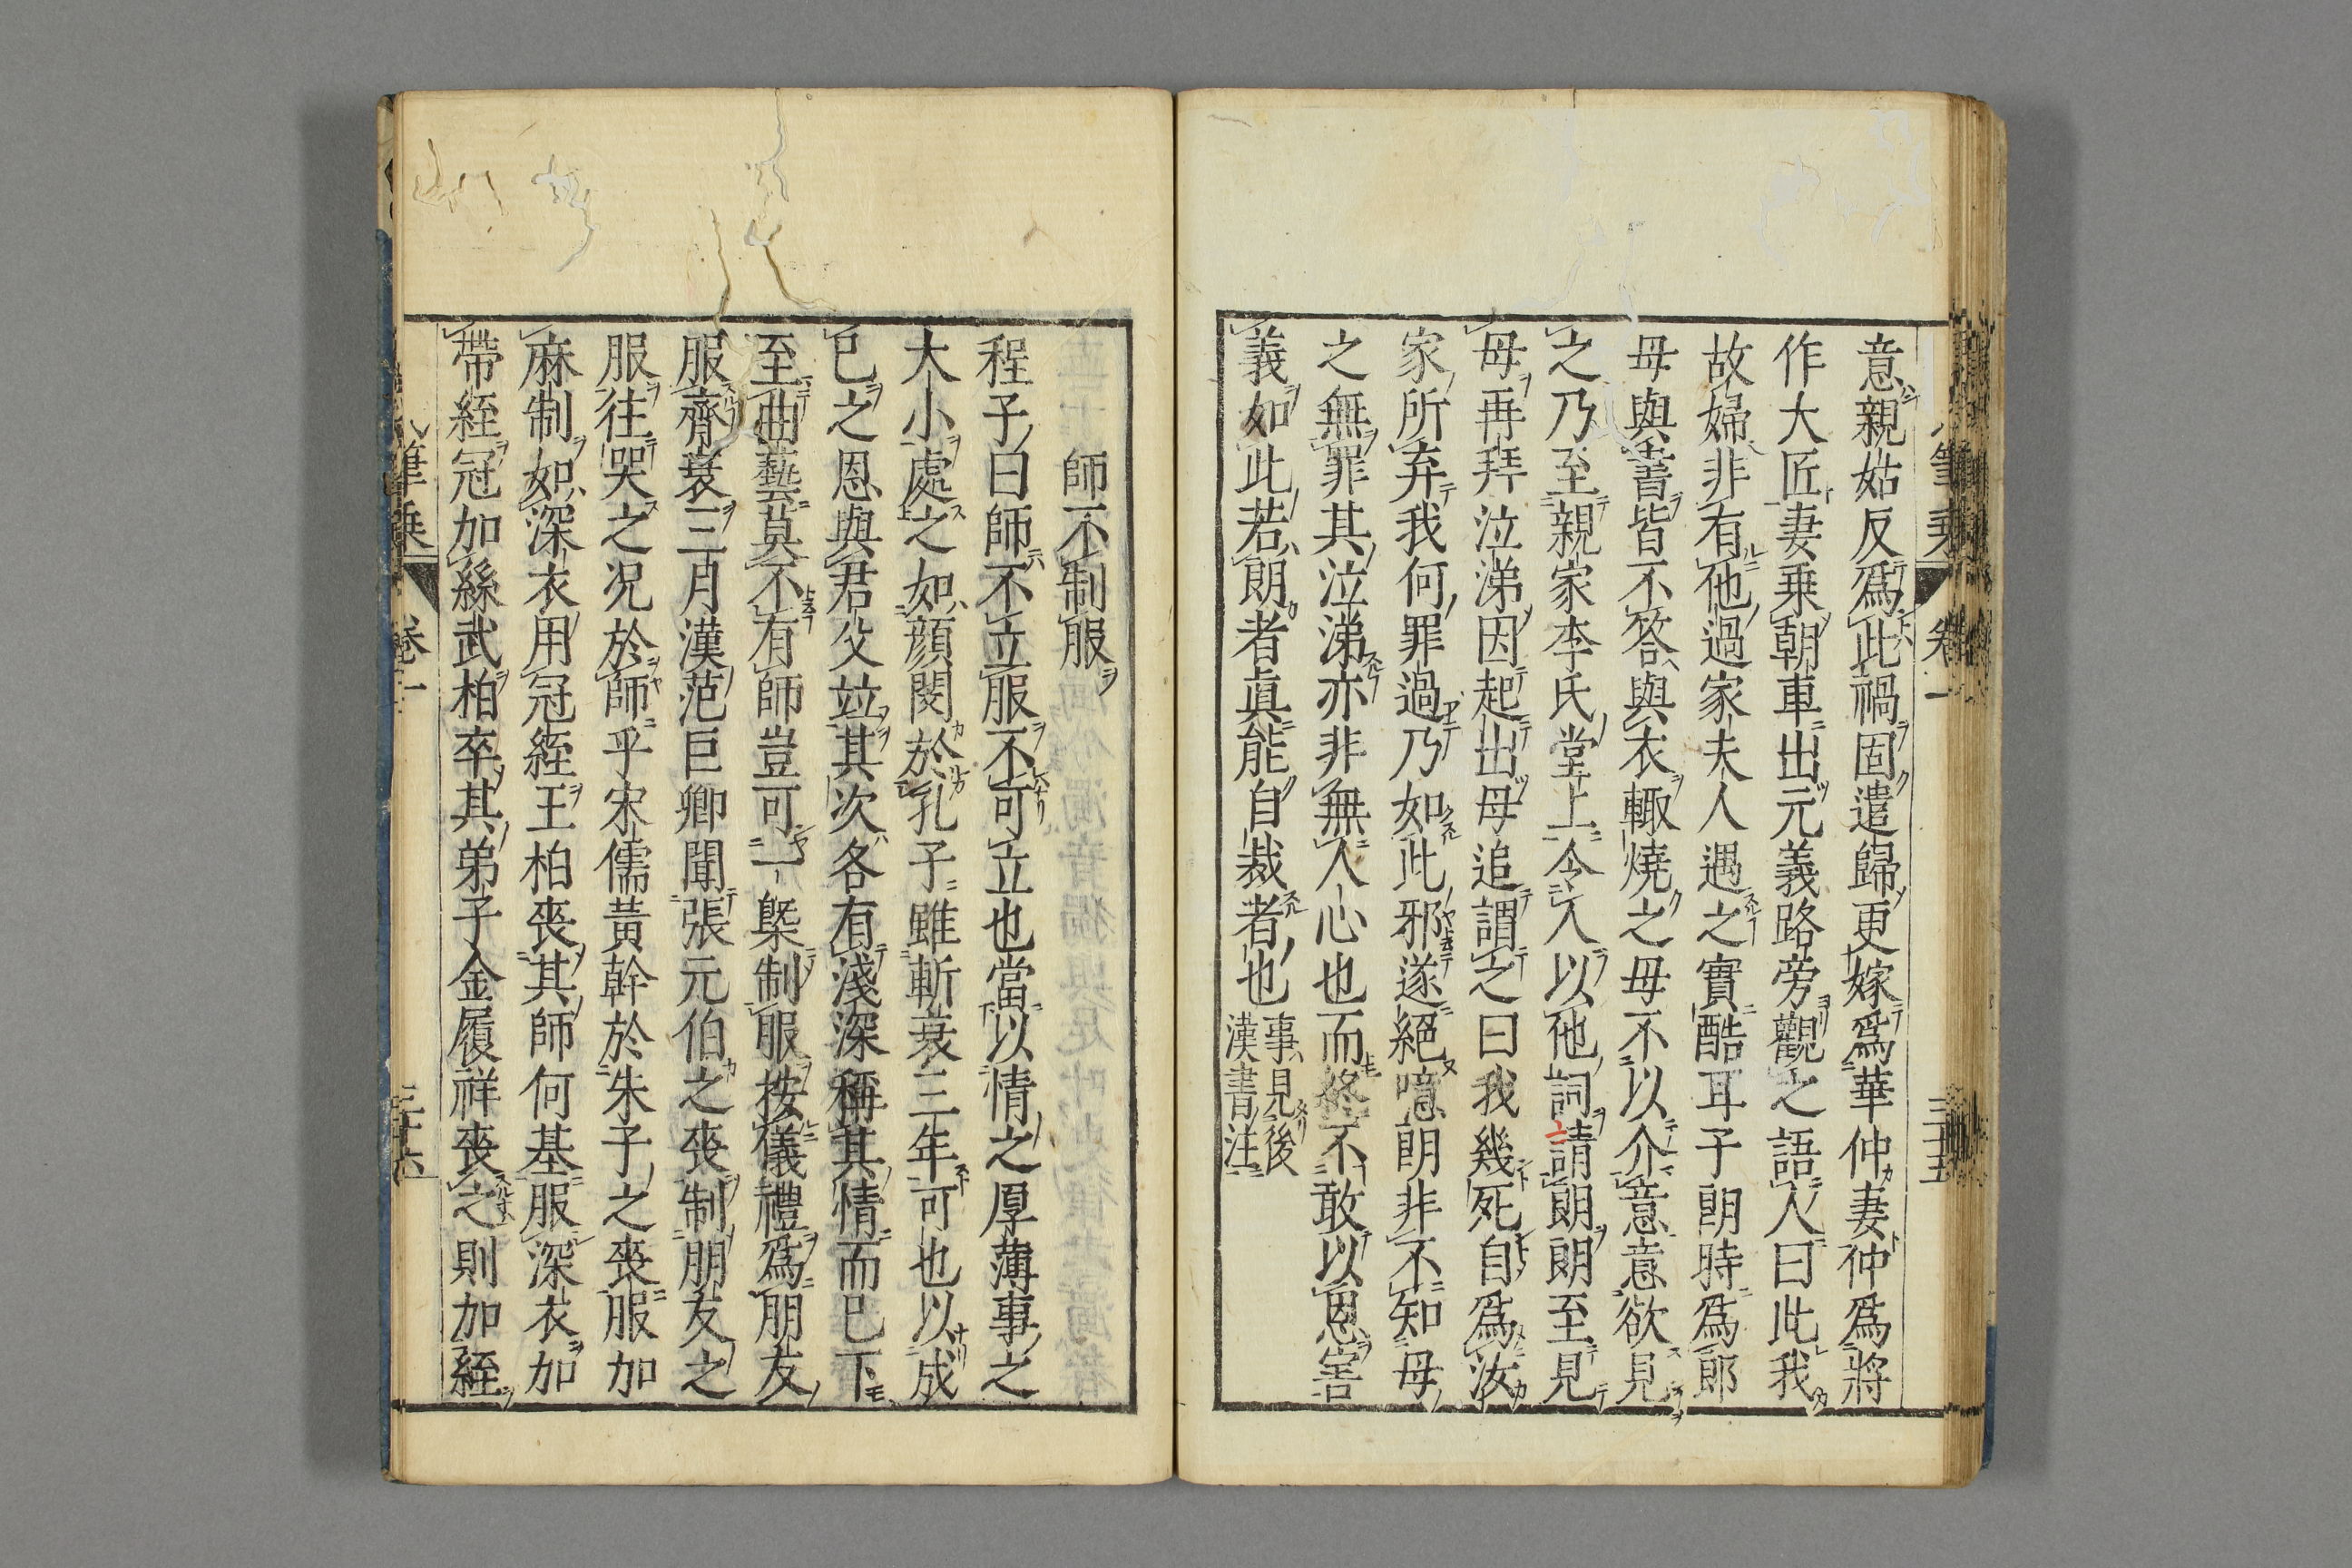 意親姑反爲此禍固遣歸更嫁爲華仲妻仲爲將
作大匠妻乗朝車出元義路旁觀之語人曰此我
故婦非有他過家夫人遇之實酷耳子朗時爲郎
母與書皆不答與衣輙燒之母不以介意意欲見
之乃至親家李氏堂上令人以他詞請朗朗至見
母再拜泣涕因起出母追謂之曰我幾死自爲汝
家所弃我何罪過乃如此邪遂絕噫朗非不知母
之無罪其泣涕亦非無人心也而終不敢以恩害
義如此若朗者眞能自裁者也事見後
漢書注
師不制服
程子曰師不立服不可立也當以情之厚薄事之
大小處之如顔閔於孔子雖斬衰三年可也以成
已之恩與君父竝其次各有淺深稱其情而已下
至曲藝莫不有師豈可一槩制服按儀禮爲朋友
服齊衰三月漢范巨卿聞張元伯之喪制朋友之
服往哭之况於師乎宋儒黃幹於朱子之喪服加
麻制如深衣用冠絰王柏喪其師何基服深衣加
帶絰冠加絲武柏卒其弟子金履祥喪之則加絰
筆乗 卷一 三十五
筆乗 卷一 三十六